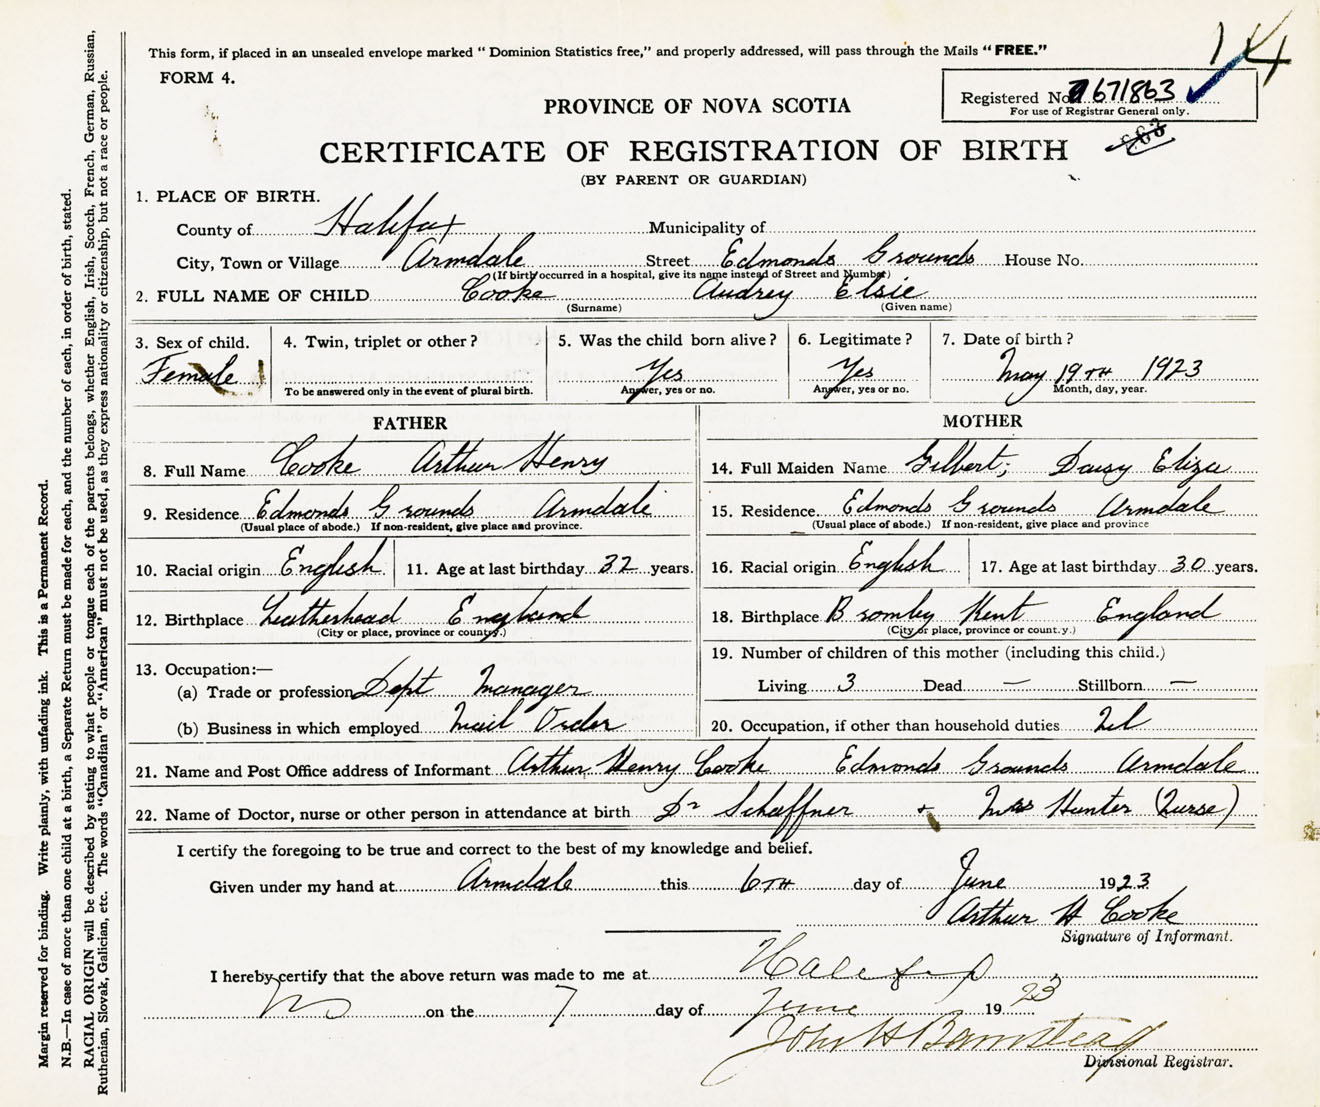 This form, if placed in an unsealed envelope marked "Dominion Statistics free," and properly addressed, will pass through the Mails "FREE."
14
FORM 4.
Registered No. 671863
For use of Registrar General only.
PROVINCE OF NOVA SCOTIA
CERTIFICATE OF REGISTRATION OF BIRTH
(BY PARENT OR GUARDIAN)
1. PLACE OF BIRTH.
County of Halifax Municipality of
City, Town or Village Armdale Street Edmonds Grounds House No.
(If birth occurred in a hospital, give its name instead of Street and Number)
2. FULL NAME OF CHILD Cooke Audrey Elsie
(Surname) (Given name)
3. Sex of child. 4. Twin, triplet or other? 5. Was the child born alive? 6. Legitimate? 7. Date of birth?
Female Yes Yes May 19TH 1923
To be answered only in the event of plural birth. Answer, yes or no. Answer, yes or no. Month, day, year.
FATHER
8. Full Name Cooke Arthur Henry
9. Residence Edmonds Grounds Armdale
(Usual place of abode.) If non-resident, give place and province.
10. Racial origin English 11. Age at last birthday 32 years.
12. Birthplace Leatherhead England
(City or place, province or country.)
13. Occupation:—
(a) Trade or profession Dept Manager
(b) Business in which employed Mail Order
MOTHER
14. Full Maiden Name Gilbert, Daisy Eliza
15. Residence. Edmonds Grounds Armdale
(Usual place of abode.) If non-resident, give place and province
16. Racial origin English 17. Age at last birthday 30 years.
18. Birthplace Bromley Kent England
(City or place, province or count.y.)
19. Number of children of this mother (including this child.)
Living 3 Dead — Stillborn —
20. Occupation, if other than household duties
21. Name and Post Office address of Informant Arthur Henry Cooke Edmonds Grounds Armdale
22. Name of Doctor, nurse or other person in attendance at birth Dr Schaffner + Mrs Hunter (Nurse)
I certify the foregoing to be true and correct to the best of my knowledge and belief.
Given under my hand at Armdale this 6TH day of June 1923
Arthur H Cooke
Signature of Informant.
I hereby certify that the above return was made to me at Halifax
NS on the 7 day of June 1923
John H Barnstead
Divisional Registrar.
Margin reserved for binding. Write plainly, with unfading ink. This is a Permanent Record.
N.B.—In case of more than one child at a birth, a Separate Return must be made for each, and the number of each, in order of birth, stated.
RACIAL ORIGIN will be described by stating to what people or tongue each of the parents belongs, whether English, Irish, Scotch, French, German, Russian,
Ruthenian, Slovak, Galician, etc. The words "Canadian" or "American" must not be used, as they express nationality or citizenship, but not a race or people.